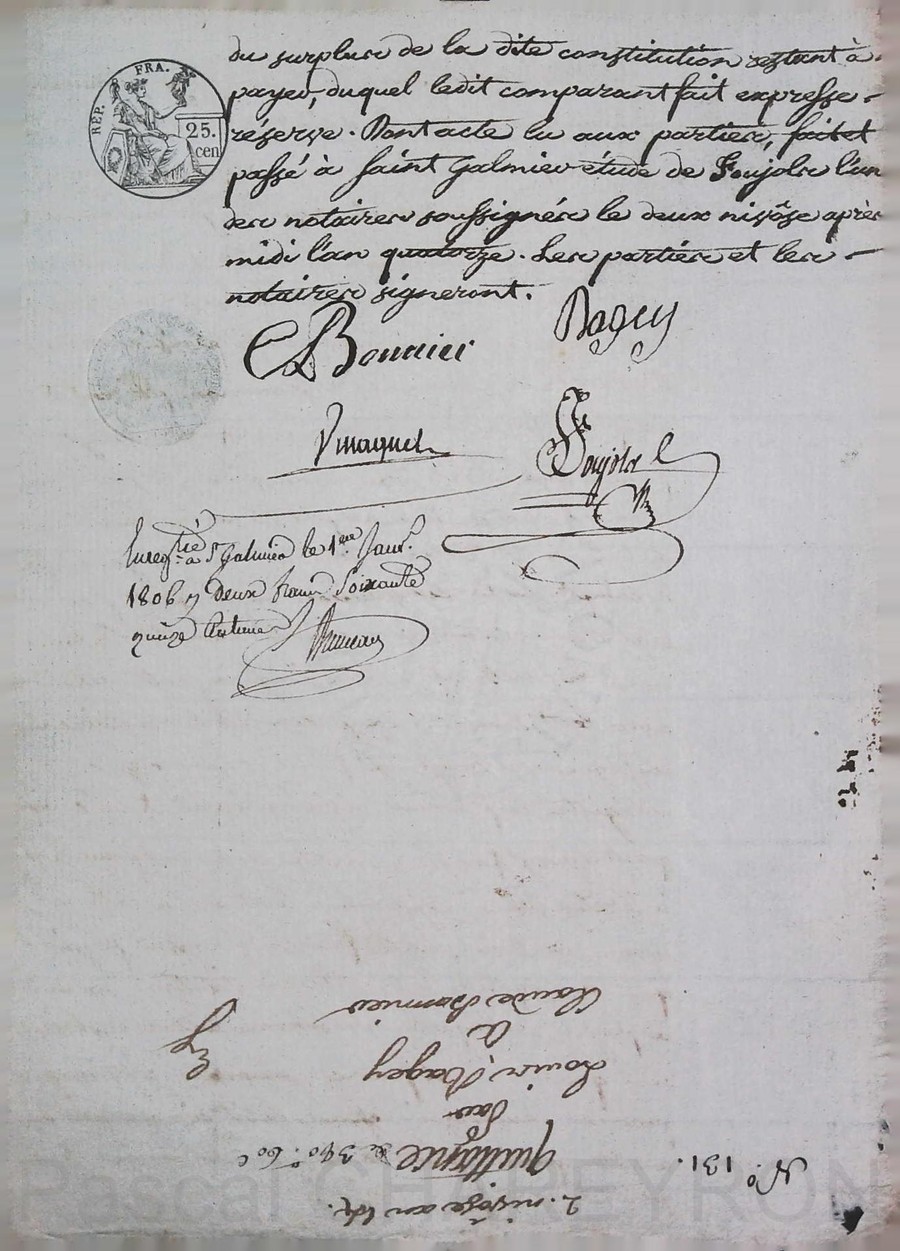 REP. FRA.
25.
cen
du surplus de la dite constitution restant à
payer, duquel ledit comparant fait expresse
réserve. Dont acte lu aux parties, fait et
passé à Saint Galmier étude de Soujols l'un
des notaires soussignés le deux nisôse après
midi l'an quatorze. Les parties et les
notaires signeront.
Bonnier Ragey
Soujols
Enregtré à St Galmier le 1ere Janv.
1806 deux francs Soixante
quinze Centimes
2. nisôse an 14.
N.o 131. quittance de 390 60c
Par
Louis Ragey
à
Claude Bonnier
Pascal CHAREYRON